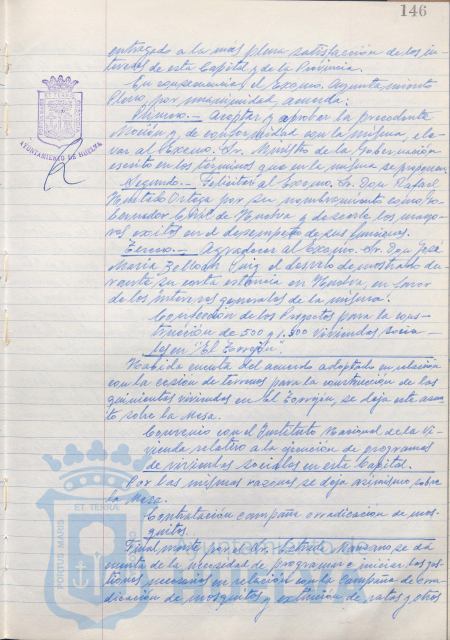 146
entregado a la más plena satisfacción de los in-
tereses de esta Capital y de la Provincia.
En consecuencia, el Excmo. Ayuntamiento
Pleno, por unanimidad, acuerda:
Primero.- Aceptar y aprobar la precedente
Moción y, de conformidad con la misma, ele-
var al Excmo. Sr. Ministro de la Gobernación
escrito en los términos que en la misma se proponen.
Segundo.- Felicitar al Excmo. Sr. Don Rafael
Hurtado Ortega por su nombramiento como Go-
bernador Civil de Huelva y desearle los mayo-
res éxitos en el desempeño de sus funciones.
Tercero.- Agradecer al Excmo. Sr. Don José
María Belloch Puig el desvelo demostrado du-
rante su corta estancia en Huelva, en favor
de los intereses generales de la misma.
Confección de los Proyectos para la cons-
trucción de 500 y 1.500 viviendas socia-
les en "El Torrejón".
Habida cuenta del acuerdo adoptado en relación
con la cesión de terrenos para la construcción de las
quinientas viviendas en El Torrejón, se deja este asun-
to sobre la Mesa.
Convenio con el Instituto Nacional de la Vi-
vienda relativo a la ejecución de programas
de viviendas sociales en esta Capital.
Por las mismas razones se deja asimismo sobre
la Mesa.
Contratación campaña erradicación de mos-
quitos.
Finalmente, por el Sr. Estrada Manzano se dá
cuenta de la necesidad de programar e iniciar las ges-
tiones necesarias en relación con la Campaña de erra-
dicación de mosquitos y extinción de ratas y otros
AYUNTAMIENTO DE HUELVA
ET TERRA
PORTUS MARIS
Ayuntamiento de